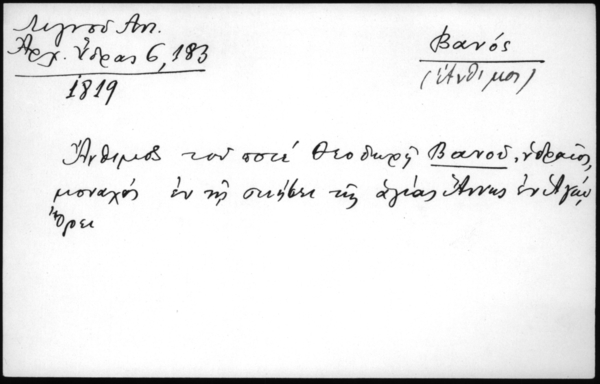 Λιγνοῦ Ἀντ.
Ἀρχ. Ὕδρας 6, 183
1819
Βανός
(Ἄνθιμος)
Ἄνθιμος τοῦ ποτέ Θεοδωρῆ Βανοῦ, ὑδραῖος,
μοναχός ἐν τῇ σκήτει τῆς ἁγίας Ἄννης ἐν Ἁγίῳ
Ὄρει